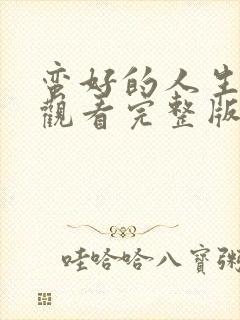 蛮好的人生
觀看完整版
哇哈哈八寶粥